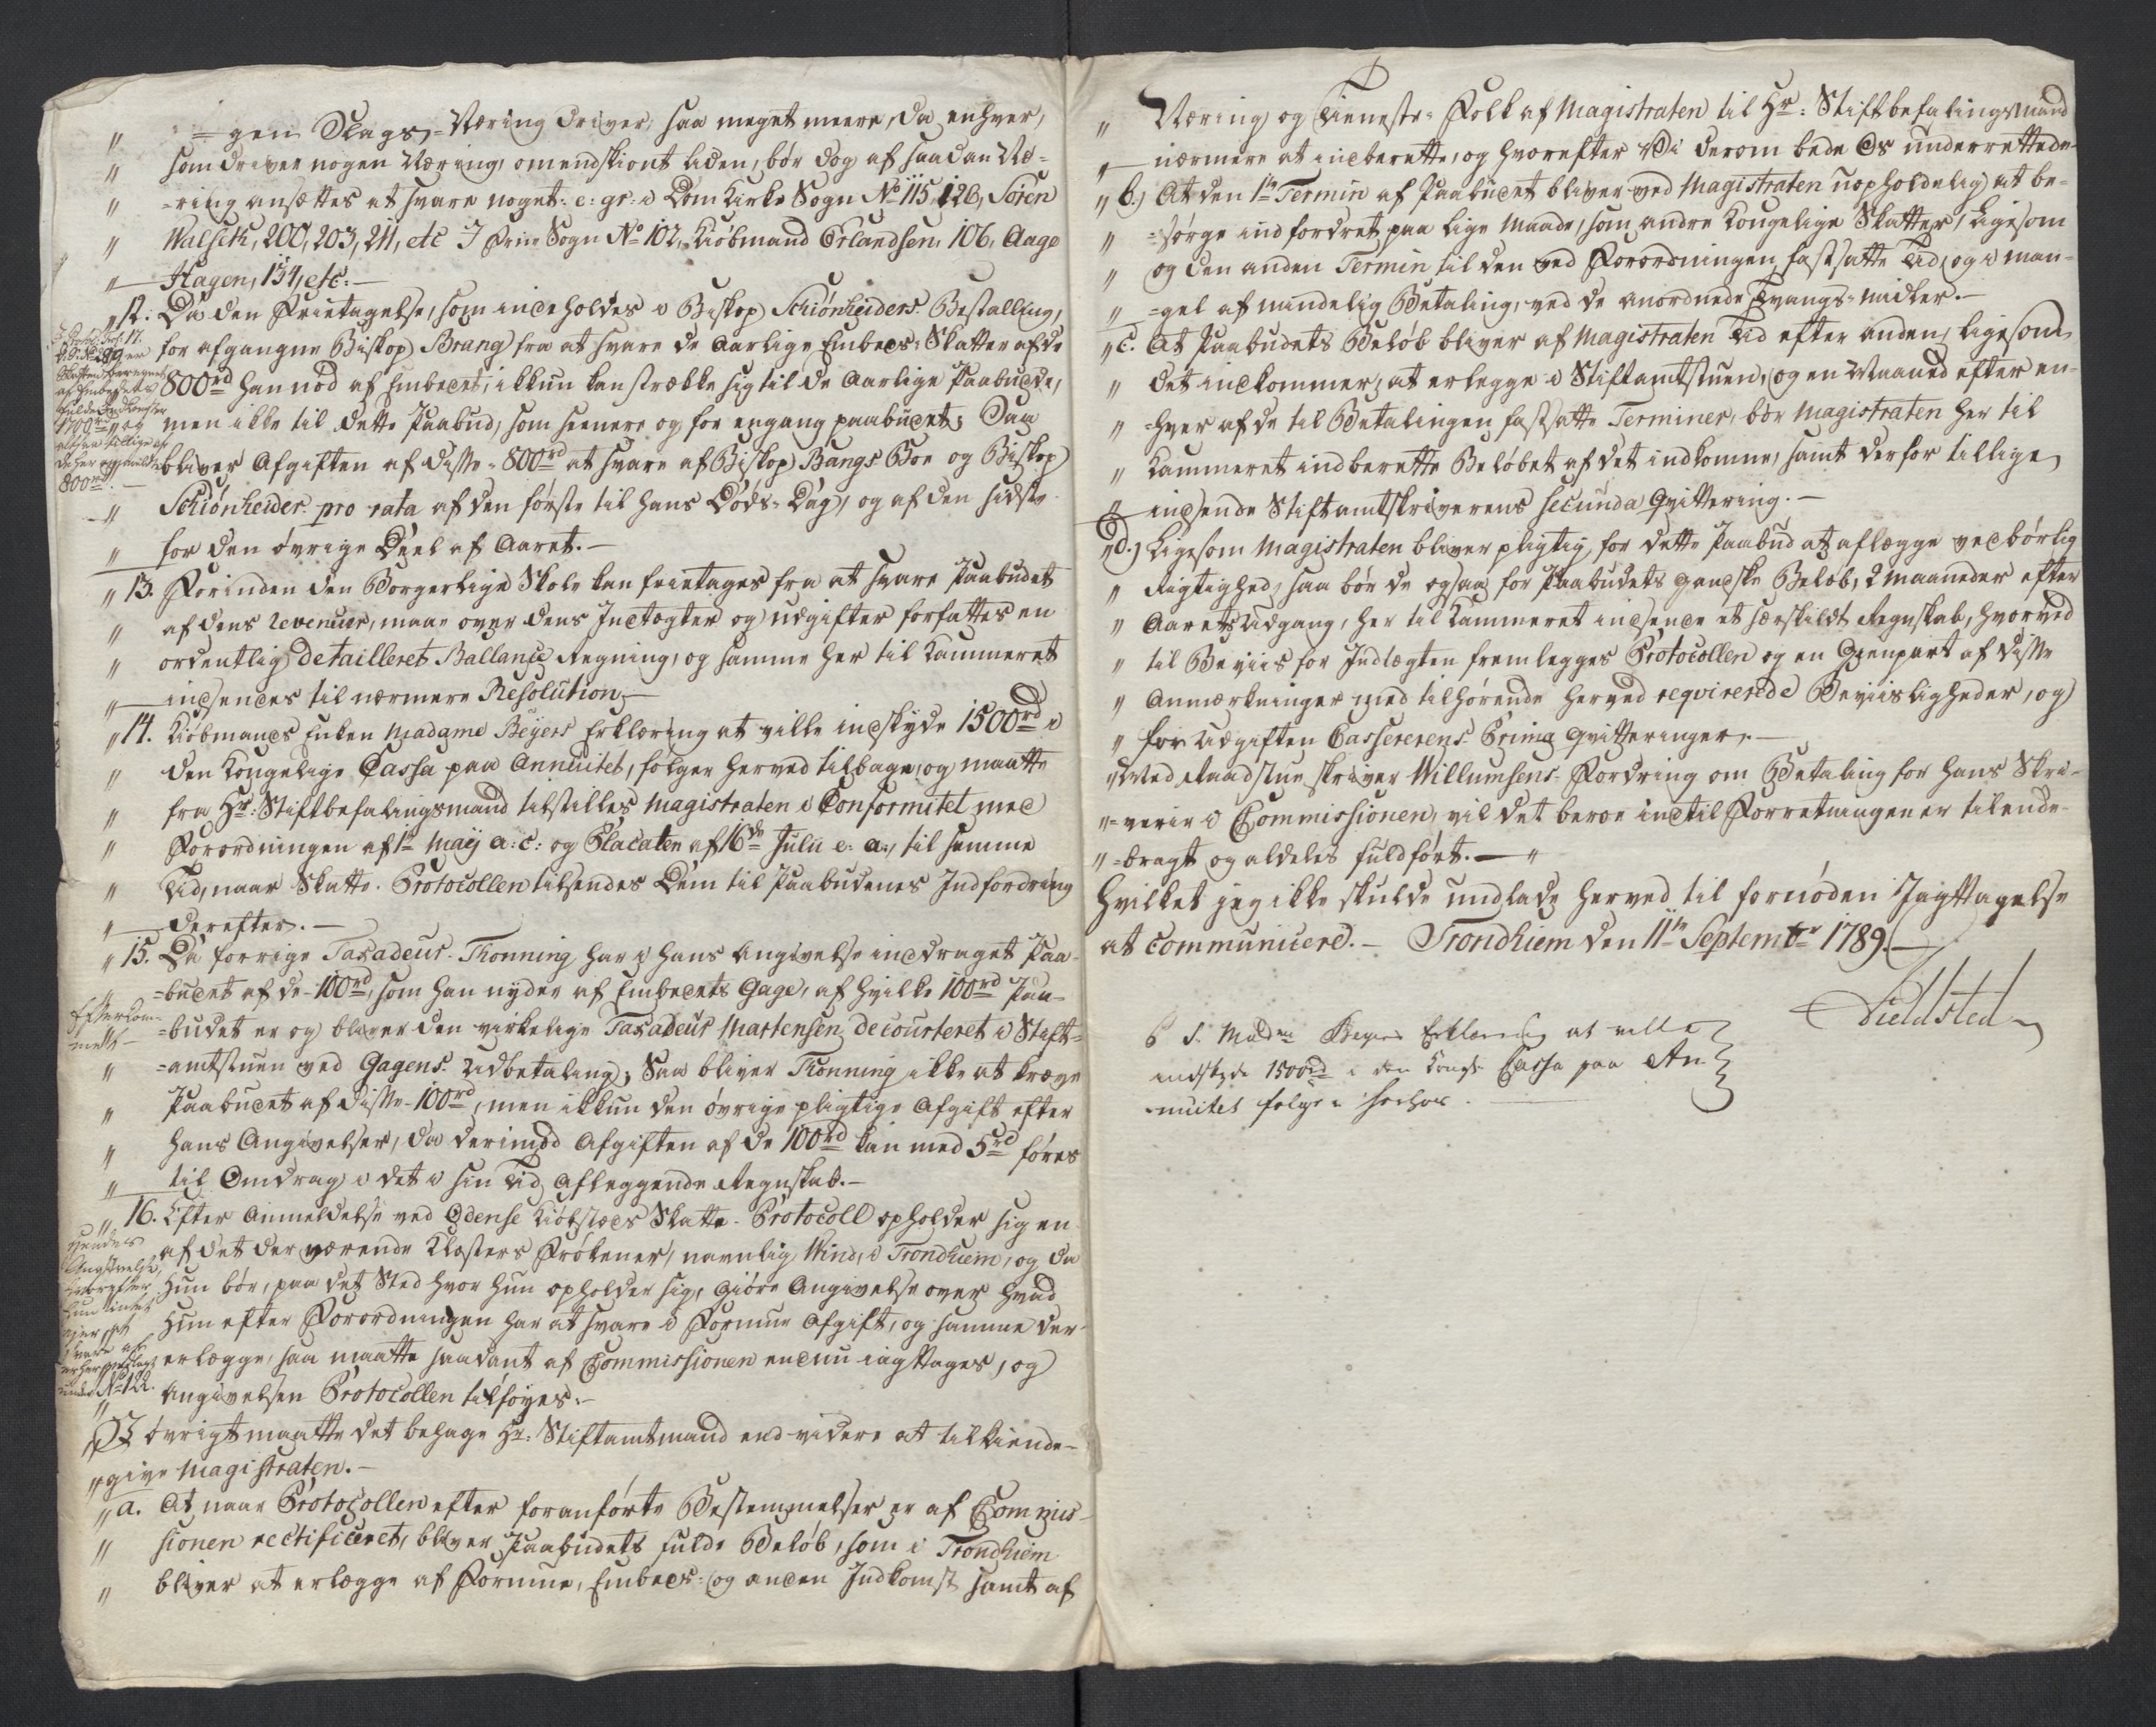 " =gen Slags-Næring driver, saa meget meere, da enhver,
" som driver nogen Næring, omendskiønt liden, bør dog af saadan Næ-
" =ring ansættes at svare noget: e: gr: i Dom Kirke Sogn No 115, 126, Søren
" Walseth, 200, 203, 211, etc I Frue Sogn No 102, Kiøbmand Erlandsen, 106, Aage
" Hagen, 134, etc:—
" 12. Da den Frietagelse, som indeholdes i Biskop Schiønheiders Bestalling,
for afgangne Biskop Bang fra at svare de aarlige Embeds-Skatter af de
800rd han nød af Embedet, ikkun kan strække sig til de aarlige Paabude,
men ikke til dette Paabud, som seenere og for engang paabudet; Saa
bliver Afgiften af disse 800rd at svare af Biskop Bangs Boe og Biskop
" Schiønheider pro rata af den første til hans Døds-Dag, og af den sidste
" for den øvrige Deel af Aaret.—
" 13. Forinden den Borgerlige Skole kan frietages fra at svare Paabudet
" af dens Revenuer, maae over dens Indtægter og Udgifter forfattes en
" ordentlig detailleret Ballance Regning, og samme her til Kammeret
" indsendes til nærmere Resolution.—
" 14. Kiøbmands Enken Madame Beyers Erklæring at ville indskyde 1500rd i
" den Kongelige Cassa paa Annuitet, følger herved tilbage, og maatte
" fra Hr: Stiftbefalingsmand tilstilles Magistraten i Conformitet med
" Forordningen af 1te Maij a: c: og Placaten af 16de Julii e: a:, til samme
" Tid, naar Skatte-Protocollen tilsendes Dem til Paabudenes Indfordring
" derefter.—
" 15. Da forrige Taxadeur Thonning har i hans Angivelse inddraget Paa-
" =budet af de 100rd, som han nyder af Embedets Gage, af hvilke 100rd Paa-
=budet er og bliver den virkelige Taxadeur Martensen decourteret i Stift-
" =amtstuen ved Gagens Udbetaling; Saa bliver Thonning ikke at kræve
" Paabudet af disse 100rd, men ikkun den øvrige pligtige Afgift efter
" hans Angivelser, da derimod Afgiften af de 100rd kan med 5rd føres
" til Omdrag i det i sin Tid aflæggende Regnskab.—
" 16. Efter Anmeldelse ved Odense Kiøbsteds Skatte-Protocoll opholder sig en
af det der værende Klosters Frøkener, navnlig Wind, i Trondhiem, og da
Hun bør, paa det Sted hvor hun opholder sig, giøre Angivelse over hvad
Hun efter Forordningen har at svare i Formue Afgift, og samme der
erlægge, saa maatte saadant af Commissionen endnu iagttages, og
" Angivelsen Protocollen tilføyes.—
" I øvrigt maatte det behage Hr: Stiftamtmand end videre at tilkiende-
" give Magistraten.—
" a. At naar Protocollen efter foranførte Bestemmelser er af Commis-
" sionen rectificeret, bliver Paabudets fulde Beløb, som i Trondhiem
" bliver at erlægge af Formue, Embeds- og anden Indkomst samt af
og Embedets
fulde Indkomster
1700rd og
altsaa tillige af
de her ommeldte
800rd.—
Efterkom-
met—
Hendes
Angivelse,
hvorefter
hun intet
eier at
svare af
er her indlagt
under No 122.
" Næring og Tieneste-Folk af Magistraten til Hr: Stiftbefalingsmand
" nærmere at indberette, og hvorefter Vi derom bede Os underrettede.
" b.) At den 1te Termin af Paabudet bliver ved Magistraten uopholdelig at be-
" =sørge indfordret paa lige Maade, som andre Kongelige Skatter, ligesom
" og den anden Termin til den ved Forordningen fastsatte Tid, og i Man-
" =gel af mindelig Betaling, ved de anordnede Tvangs-Midler.—
" c. At Paabudets Beløb bliver af Magistraten Tid efter anden, ligesom
" det indkommer, at erlegge i Stiftamtstuen, og en Maaned efter en-
" =hver af de til Betalingen fastsatte Terminer, bør Magistraten her til
" Kammeret indberette Beløbet af det indkomne, samt derfor tillige
" indsende Stiftamtskriverens secunda Qvittering.—
" d.) Ligesom Magistraten bliver pligtig, for dette Paabud at aflægge vedbørlig
" Rigtighed, saa bør de ogsaa for Paabudets gandske Beløb, 2 Maaneder efter
" Aarets Udgang, her til Kammeret indsende et særskildt Regnskab, hvorved
" til Beviis for Indtægten fremlegges Protocollen og en Gienpart af disse
" Anmærkninger med tilhørende herved reqvirerede Beviisligheder, og
" for Udgiften Cassererens Prima Qvitteringer.—
" Med Raadstueskriver Willumsens Fordring om Betaling for hans Skri-
" =verie i Commissionen, vil det beroe indtil Forretningen er tilende-
" =bragt og aldeles fuldført.— "
Hvilket jeg ikke skulde undlade herved til fornøden Jagttagelse
at communicere.— Trondhiem den 11te Septembr 1789.—
Fieldsted
P. S. Madme Beyers Erklæring at ville
indskyde 1500rd i den Kongl. Cassa paa An-
nuitet følger herhos.—